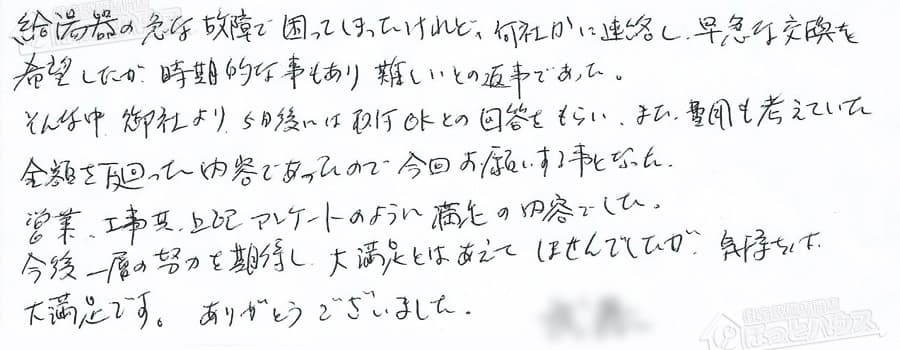 給湯器の急な故障で困ってしまったけれど、何社かに連絡し、早急な交換を
希望したが、時期的な事もあり難しいとの返事であった。
そんな中、御社より、5日後には取付OKとの回答をもらい、また、費用も考えていた
金額を下回った内容であったので今回お願いする事となった。
営業、工事共、上記アンケートのように満足の内容でした。
今後一層の努力を期待し、大満足とはあえてしませんでしたが、気持ちは
大満足です。ありがとうございました。